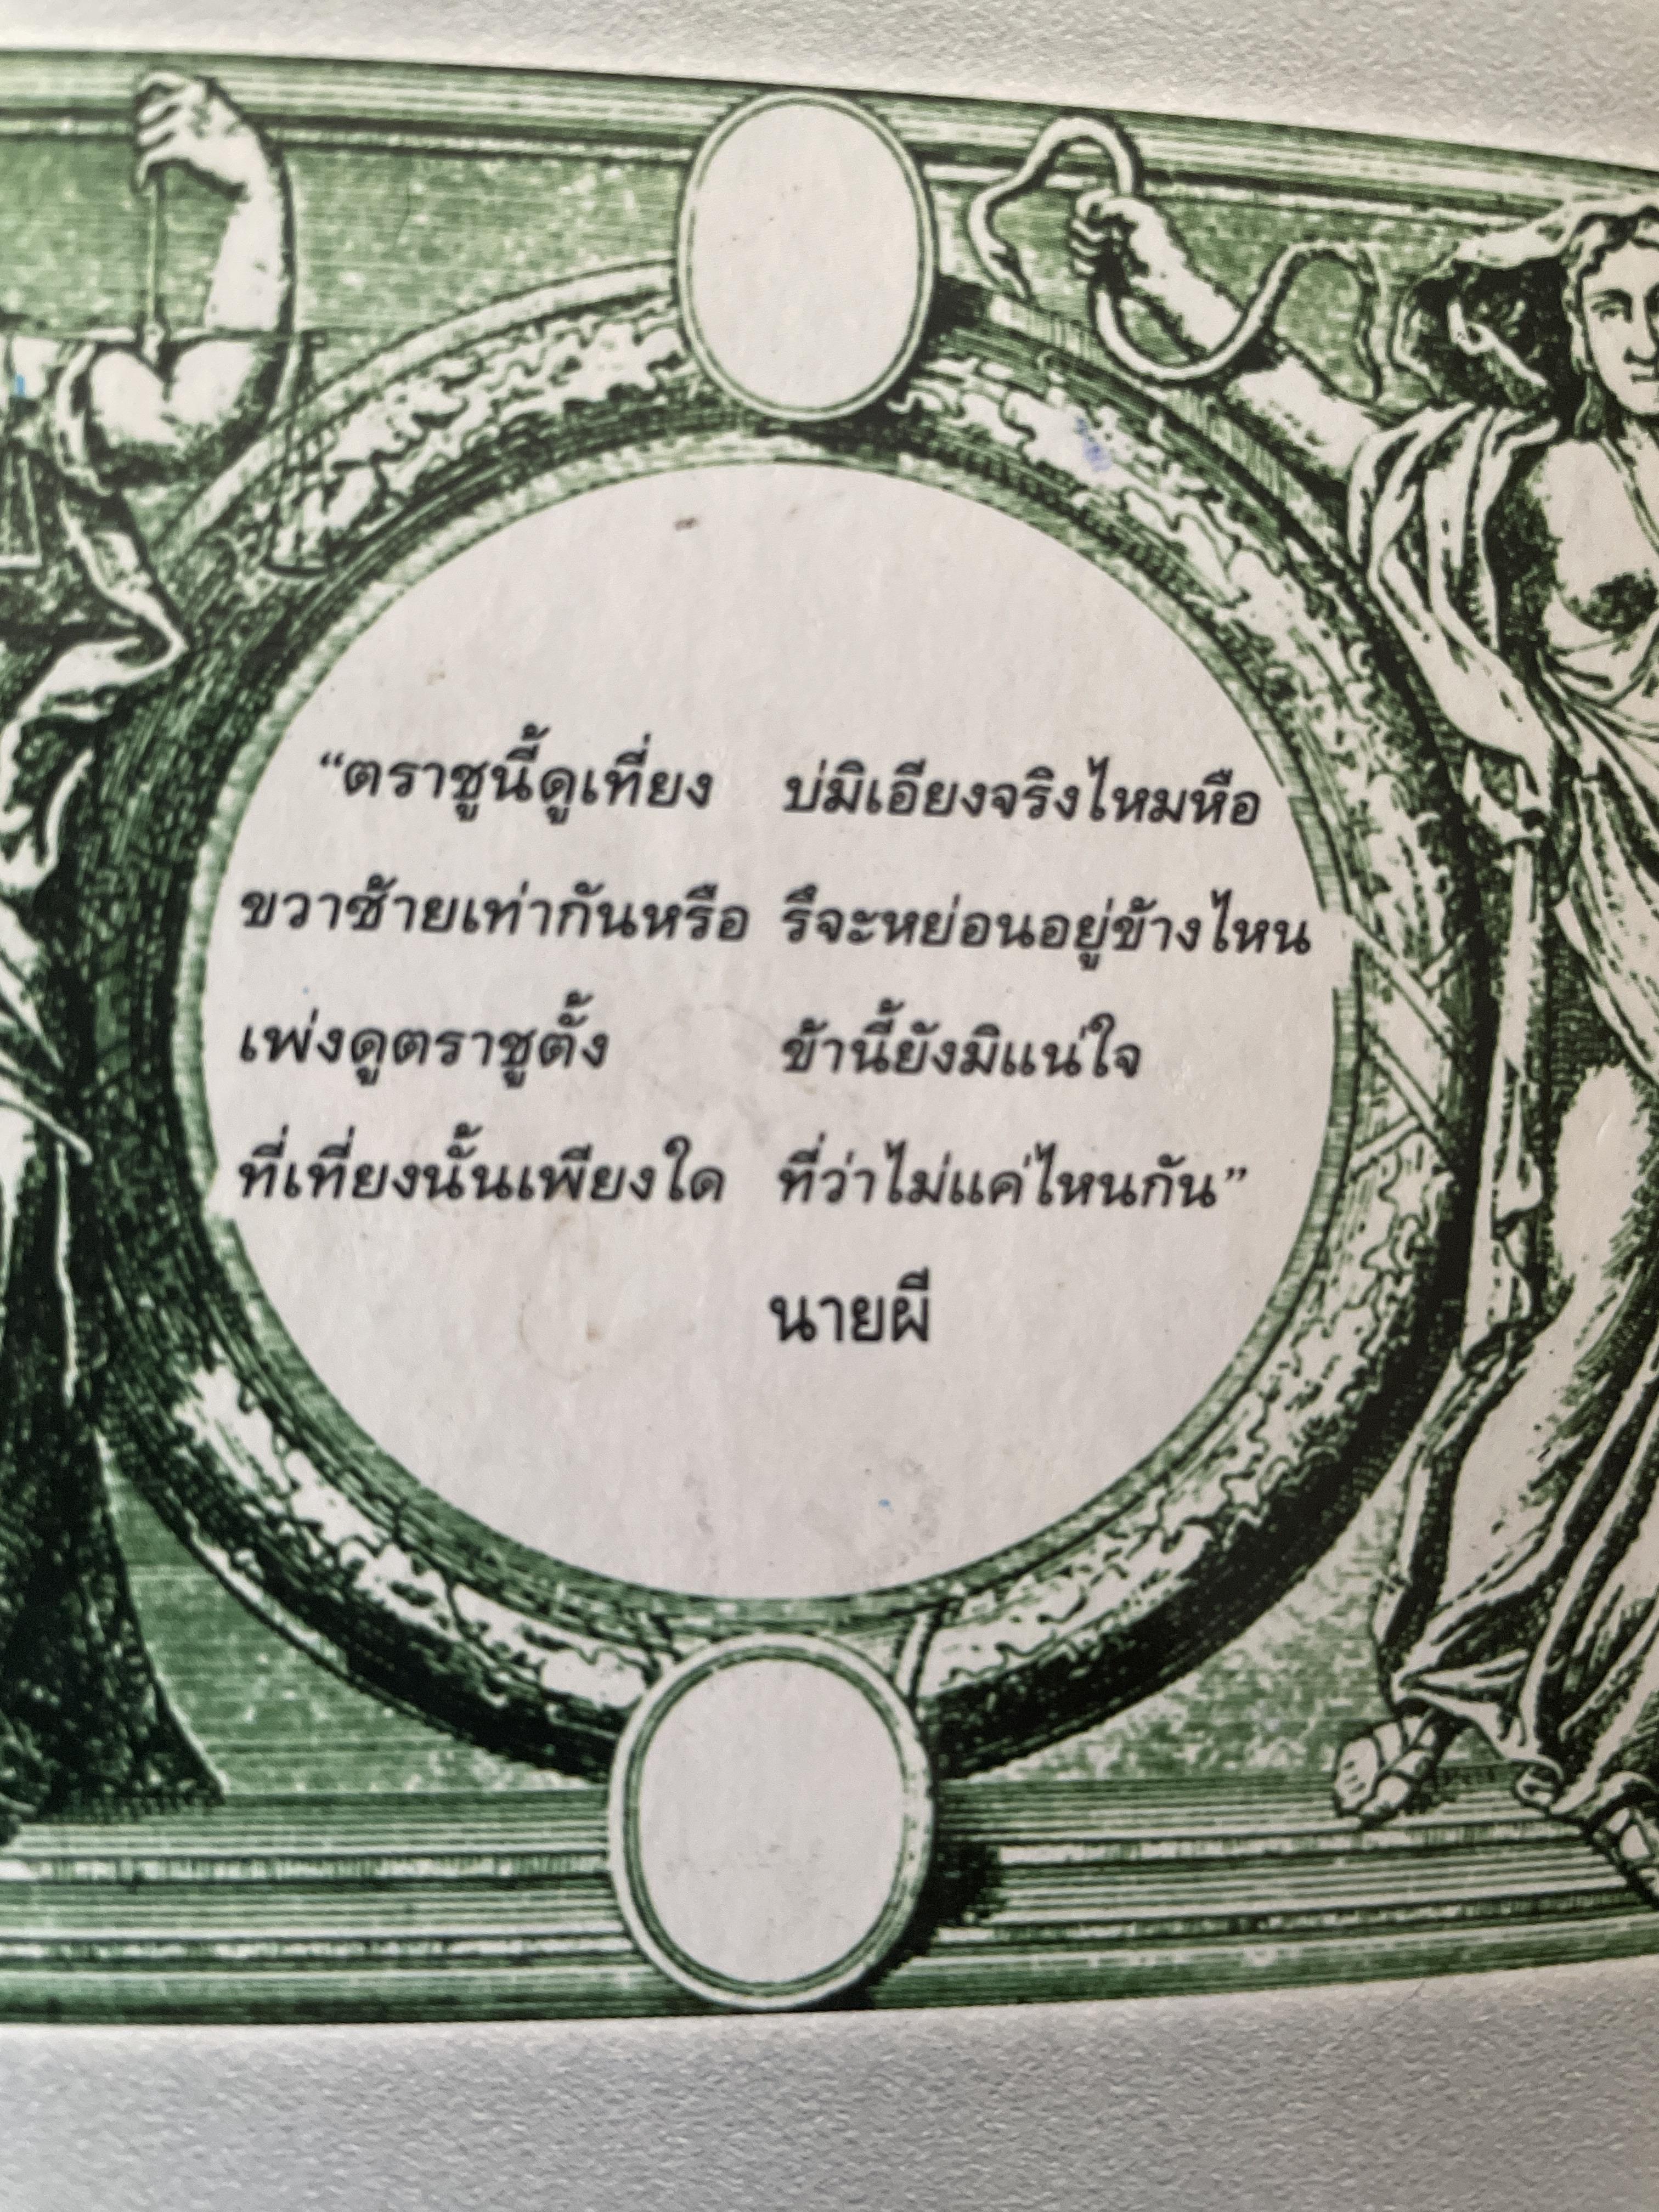 “ตราชูนี้ดูเที่ยง บ่มิเอียงจริงไหมหือ
ขวาซ้ายเท่ากันหรือ รึจะหย่อนอยู่ข้างไหน
เพ่งดูตราชูตั้ง ข้านี้ยังมิแน่ใจ
ที่เที่ยงนั้นเพียงใด ที่ว่าไม่แค่ไหนกัน”
นายผี